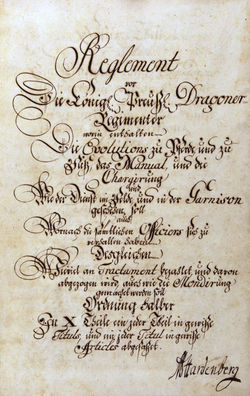 Reglement
vor
Die Königl. Preuß. Dragoner
Regimenter
worin enthalten
Die Evolutions zu Pferde und zu
Fuß, das Manual, und die
Chargirung
und
Wie der Dienst im Felde und in der Garnison
geschehen soll
auch
Wornach die sämtlichen Officiers sich zu
verhalten haben
Desgleichen
Wieviel an Tractament bezahlet und davon
abgezogen wird, auch wie die Mondirung
gemachet werden soll
Ordnung halber
In X Theile ein jeder Theil in gewiße
Tituls, und ein jeder Titul in gewiße
Articles abgefaßet.
Hardenberg